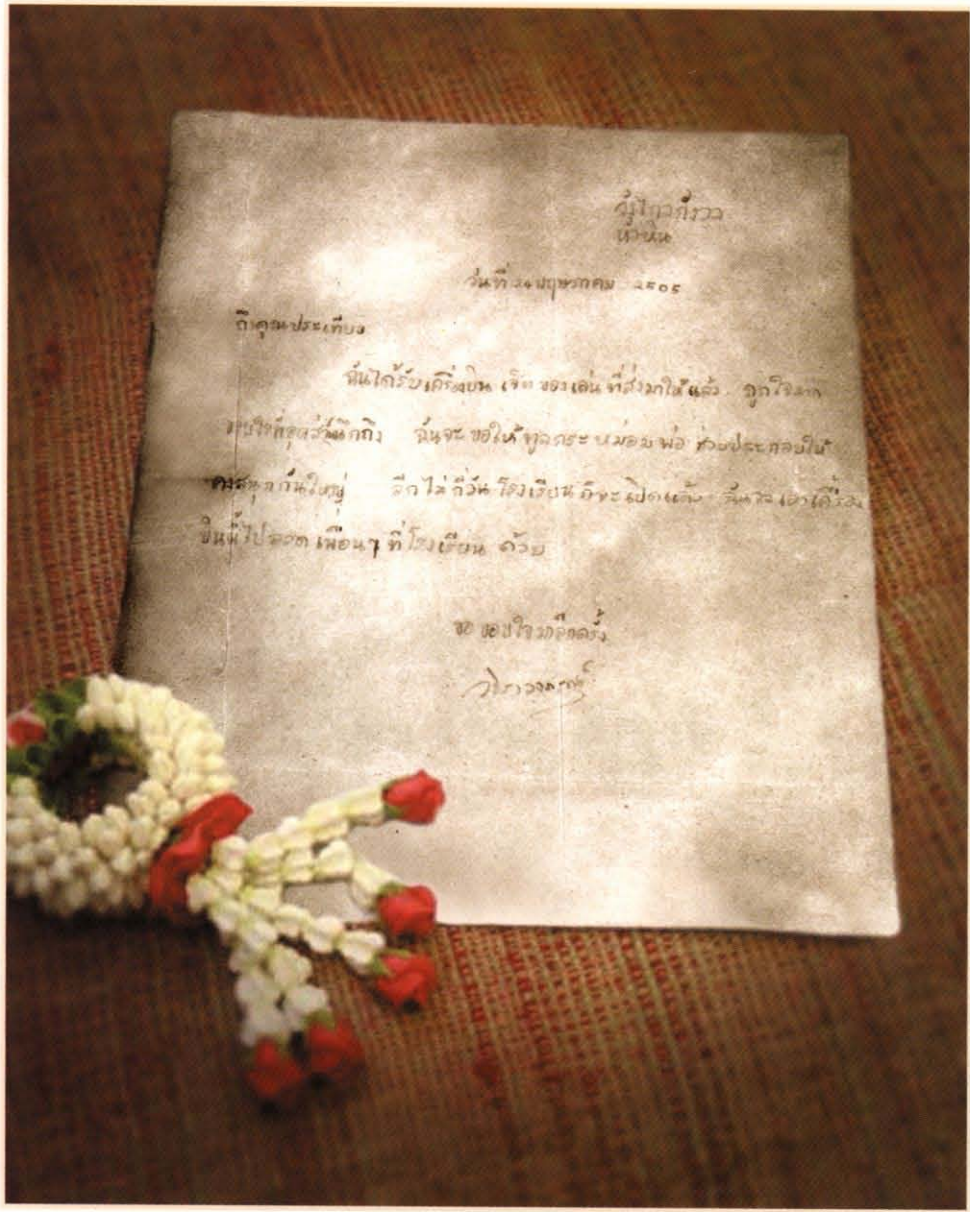 วังไกลกังวล
หัวหิน
วันที่ 24 พฤษภาคม 2505
ถึงคุณประเทียบ
ฉันได้รับเครื่องบิน เจ็ต ของเล่น ที่ส่งมาให้แล้ว ถูกใจมาก
ขอบใจที่อุตส่าห์นึกถึง ฉันจะ ขอให้ ทูลกระ หม่อม พ่อ ช่วยประกอบให้
คงสนุกกันใหญ่ อีกไม่กี่วัน โรงเรียน ก็จะ เปิดแล้ว ฉันจะ เอาเครื่อง
บินนี้ไปอวด เพื่อนๆ ที่โรงเรียน ด้วย
ขอ ขอบใจมาอีกครั้ง
วชิราลงกรณ์